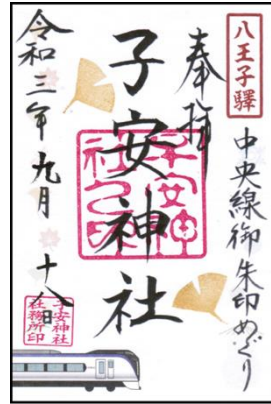 八王子驛
中央線御朱印めぐり
奉拝
子安神社
子安神社之印
令和三年九月十八日
子安神社
社務所印